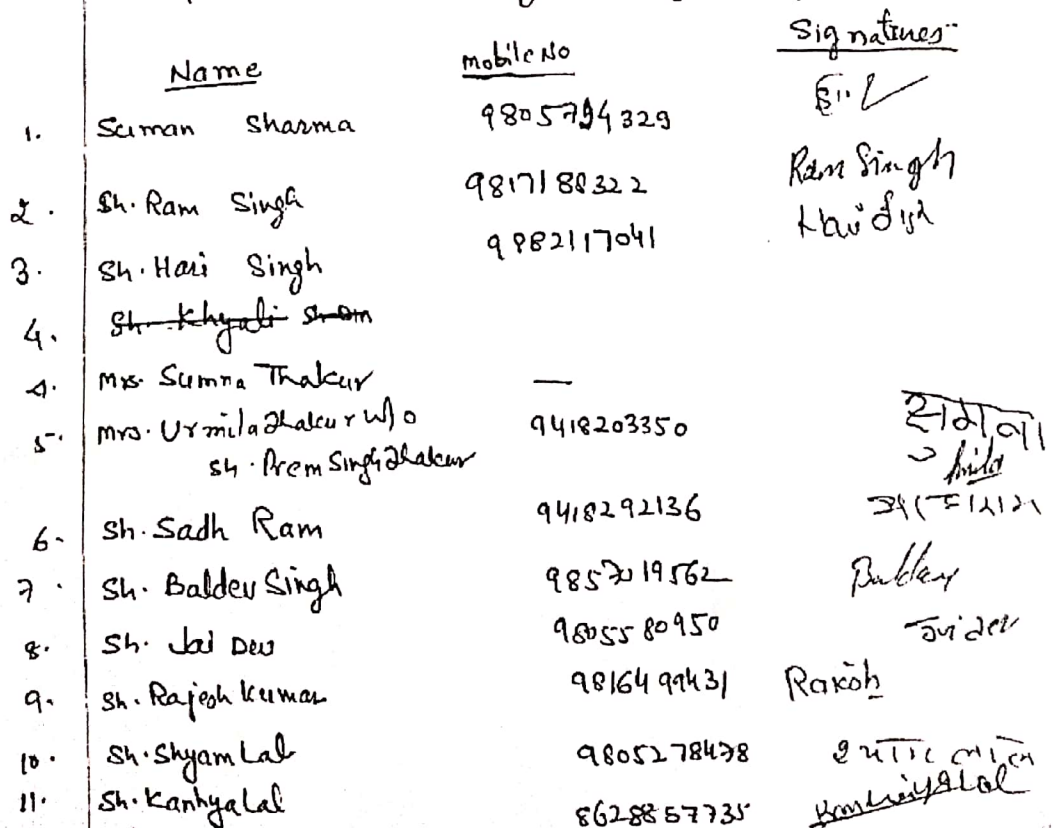 Signatures
Name mobile No
1. Suman Sharma 9805794329
2. Sh. Ram Singh 9817188322 Ram Singh
3. Sh. Hari Singh 9882117041
4. Sh. Khyali
4. Mrs. Sumna Thakur —
5. Mrs. Urmila Thakur W/o 9418203350
Sh. Prem Singh Thakur
6. Sh. Sadh Ram 9418292136
7. Sh. Baldev Singh 9857019562 Baldev
8. Sh. Jai Dev 9805580950
9. Sh. Rajesh Kumar 9816499431 Rakesh
10. Sh. Shyam Lal 9805278478 श्याम लाल
11. Sh. Kanhya Lal 8628857735 Kanhiya Lal